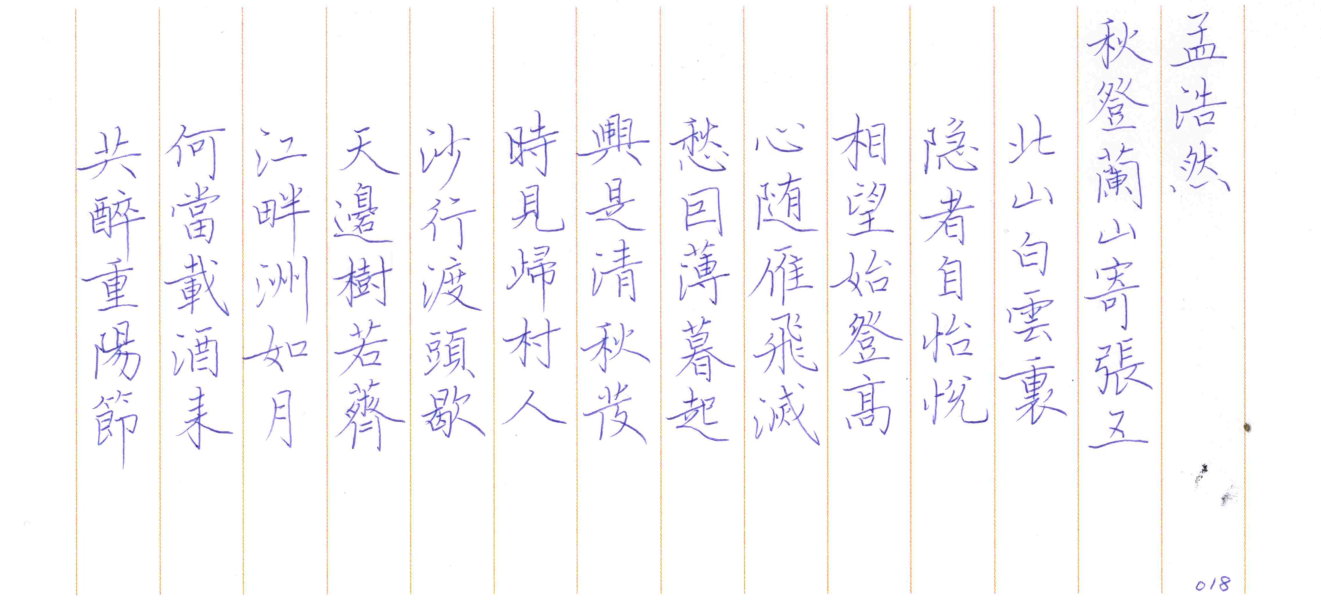 孟浩然
秋登蘭山寄張五
北山白雲裏
隐者自怡悅
相望始登高
心随雁飛滅
愁因薄暮起
興是清秋发
時見歸村人
沙行渡頭歇
天邊樹若薺
江畔洲如月
何當載酒来
共醉重陽節
018